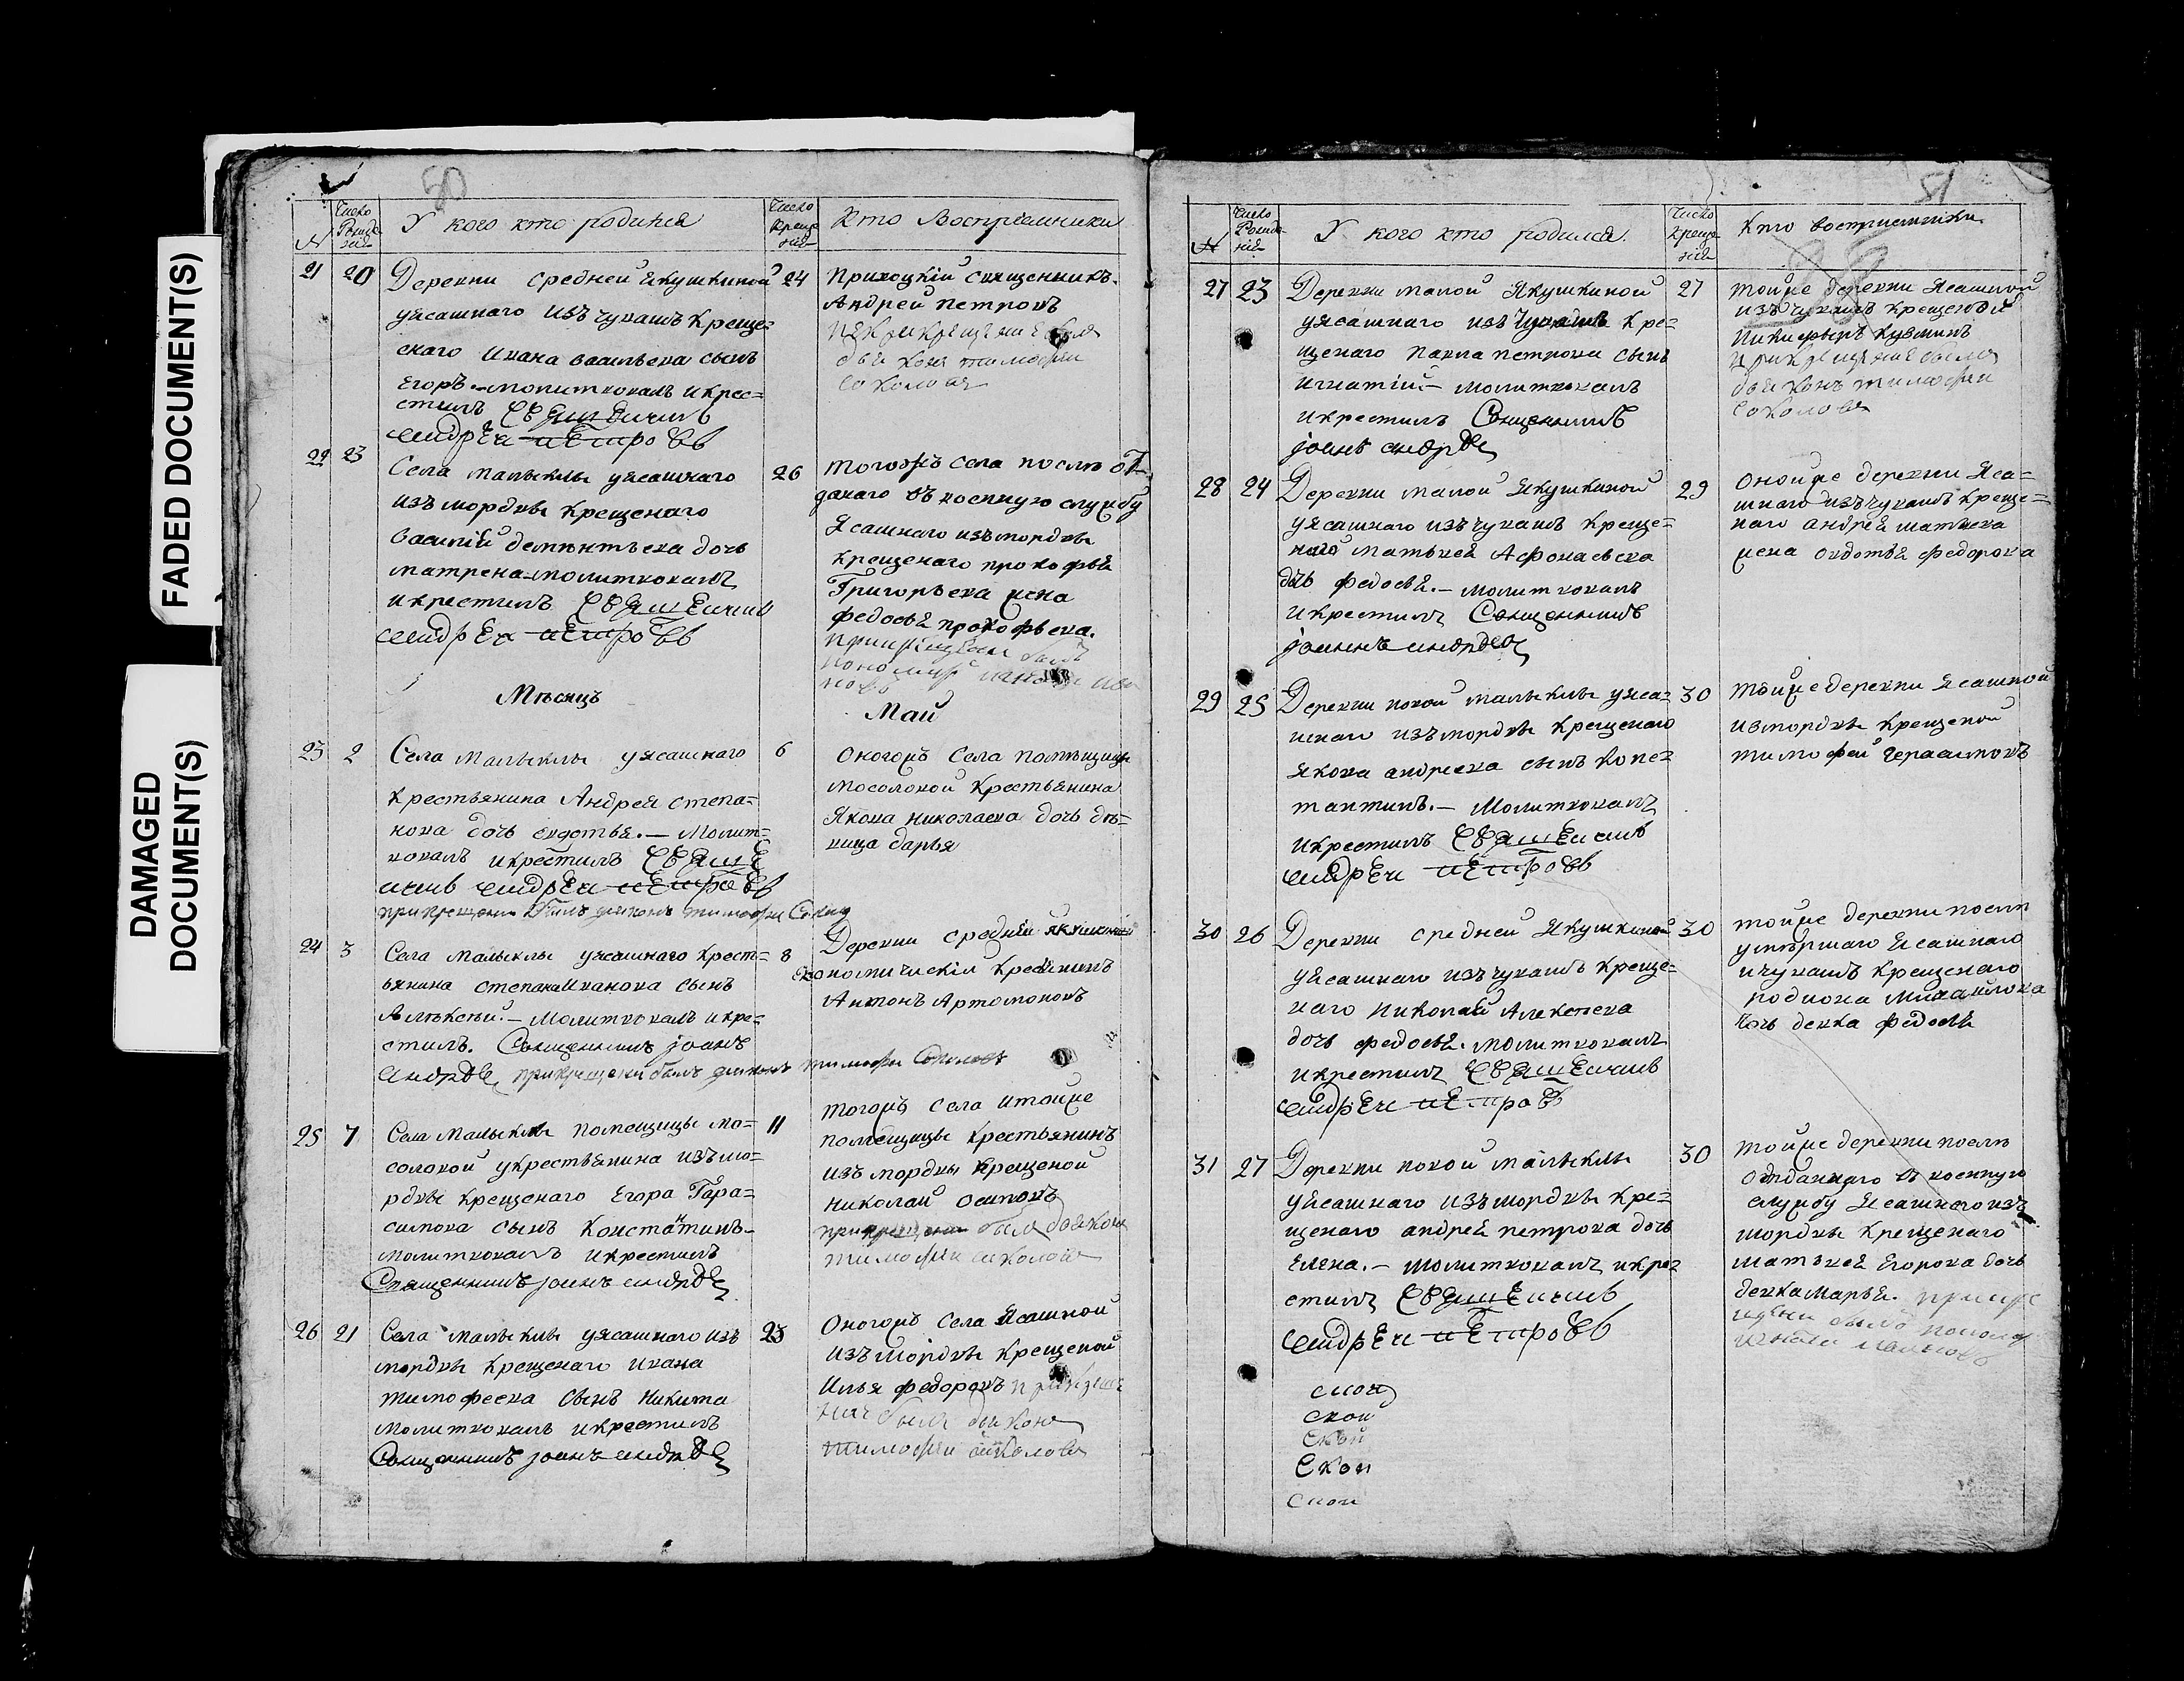 FADED DOCUMENT(S)
DAMAGED
DOCUMENT(S)
50
№
Число Рожде ния
У кого кто родился
Число креще ния
Кто Восприемники
21 20
Деревни средней Якушкиной
уясашнаго изъ чувашъ креще=
наго Ивана васильева сынъ
Егоръ – молитвовалъ икрес=
стилъ Священникъ
андреи петровъ
24
приходскій священникъ
Андрей петровъ
прикрещение былъ
дьяконъ тимофеи
соколовъ
22 23
Села малыклы уясашнаго
изъ мордвы крещенаго
василій дементьева дочь
матрена – молитвовалъ
икрестилъ Священникъ
андреи петровъ
26
тогожъ села послѣ от
данаго въ военную службу
Ясашнаго изъ мордвы
крещенаго прокофья
Григорьева жена
федосья прокофьева.
прикрещении былъ
пономарь
Мѣсяцъ
Май
23 2
Села малыклы уясашнаго
крестьянина Андрея степа=
нова дочь евдотья. – Молит=
вовалъ икрестилъ Свяще
нникъ андреи петровъ
прикрещени былъ дьяконъ тимофеи Соколо
6
оногожъ Села помѣщицы
мосоловой крестьянина
Якова николаева дочь дѣ=
вица дарья
24 3
Села малыклы уясашнаго крест=
ьянина степана Иванова сынъ
Алѣксѣй. – Молитвовалъ икре=
стилъ. Священникъ іоанъ
андреев прикрещени былъ дьяконъ тимофеи Соколовъ
8
Деревни средней якушкиной
экономическій кресьянинъ
Антонъ Артомоновъ
25 7
Села малыклы помещицы мо=
соловой укрестьянина изъ мо=
рдвы крещенаго Егора Гара=
симова сынъ константинъ –
молитвовалъ икрестилъ
Священникъ іоанъ андреев
11
тогожъ села итойже
помещицы крестьянинъ
изъ мордвы крещеной
николай осиповъ
прикрещени былъ дьяконъ
тимофеи соколовъ
26 21
Села малыклы уясашнаго изъ
мордвы крещенаго ивана
тимофеева сынъ никита
молитвовалъ икрестилъ
Священникъ іоанъ андреев
23
оногожъ села Ясашной
изъ мордвы крещеной
Илья федоровъ прикреще
нии былъ дьяконъ
тимофеи соколовъ
51
№
Число Рожде ния
У кого кто родился.
Число креще ния
Кто восприемники
27 23
Деревни малой Якушкиной
уясашнаго изъ чувашъ кре=
щенаго павла петрова сынъ
игнатій – молитвовалъ
икрестилъ Священникъ
іоанъ андреев
27
тойже деревни Ясашной
изъ чувашъ крещеной
Никифыръ кузминъ
прикрещение былъ
дьяконъ тимофеи
соколовъ
28 24
Деревни малой Якушкиной
уясашнаго изъ чувашъ креще=
наго матьвея Афонасьева
дочь федосья. – молитвовалъ
икрестилъ Священникъ
іоаннъ андреев
29
онойже деревни Яса=
шнаго изъ чувашъ креще=
наго андрея матвева
жена овдотья федорова
29 25
Деревни новой малыклы уяса=
шнаго изъ мордвы крещенаго
якова андреева сынъ Конс=
тантинъ. – Молитвовалъ
икрестилъ Священникъ
андреи петровъ
30
тойже деревни Ясашной
измордвы крещеной
тимофей Герасимовъ
30 26
Деревни средней Якушкиной
уясашнаго изъ чувашъ креще=
наго николай Алексеева
дочь федосья. молитвовалъ
икрестилъ Священникъ
андреи петровъ
30
тойже деревни послѣ
умѣршаго Ясашнаго
ичувашъ крещенаго
родиона михайлова
дочь девка федосья
31 27
Деревни новой малыклы
уясашнаго изъ мордвы кре=
щенаго андрея петрова дочь
Елена. – молитвовалъ икре=
стилъ Священникъ
андреи петровъ
30
тойже деревни послѣ
отданнаго въ военную
службу Ясашнаго изъ
мордвы крещенаго
матвея Егорова дочь
девка марья. прикре
щени былъ пономар
скои
скои
скои
скои